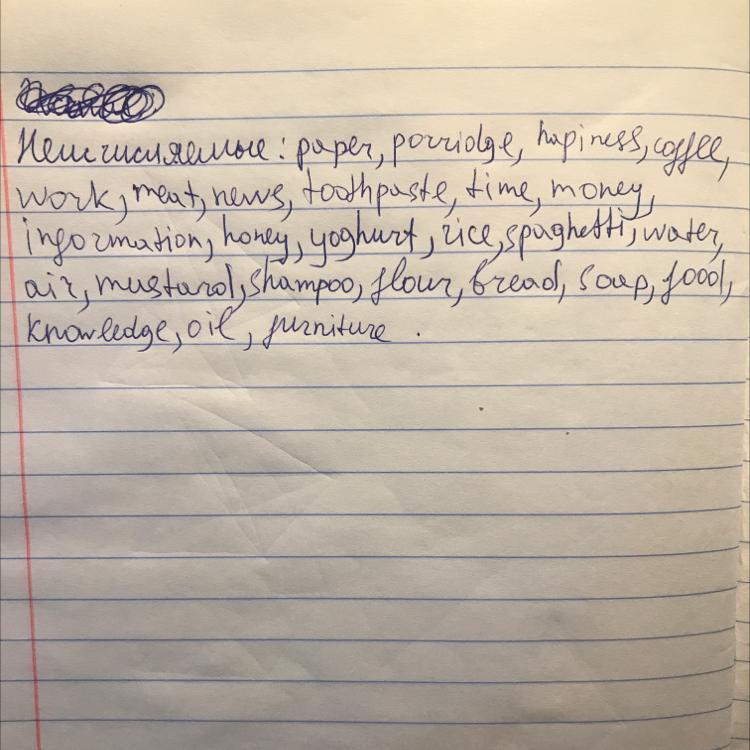 Неисчисляемые: paper, porridge, hapiness, coffee,
work, meat, news, toothpaste, time, money,
information, honey, yoghurt, rice, spaghetti, water,
air, mustard, shampoo, flour, bread, soup, food,
knowledge, oil, furniture.